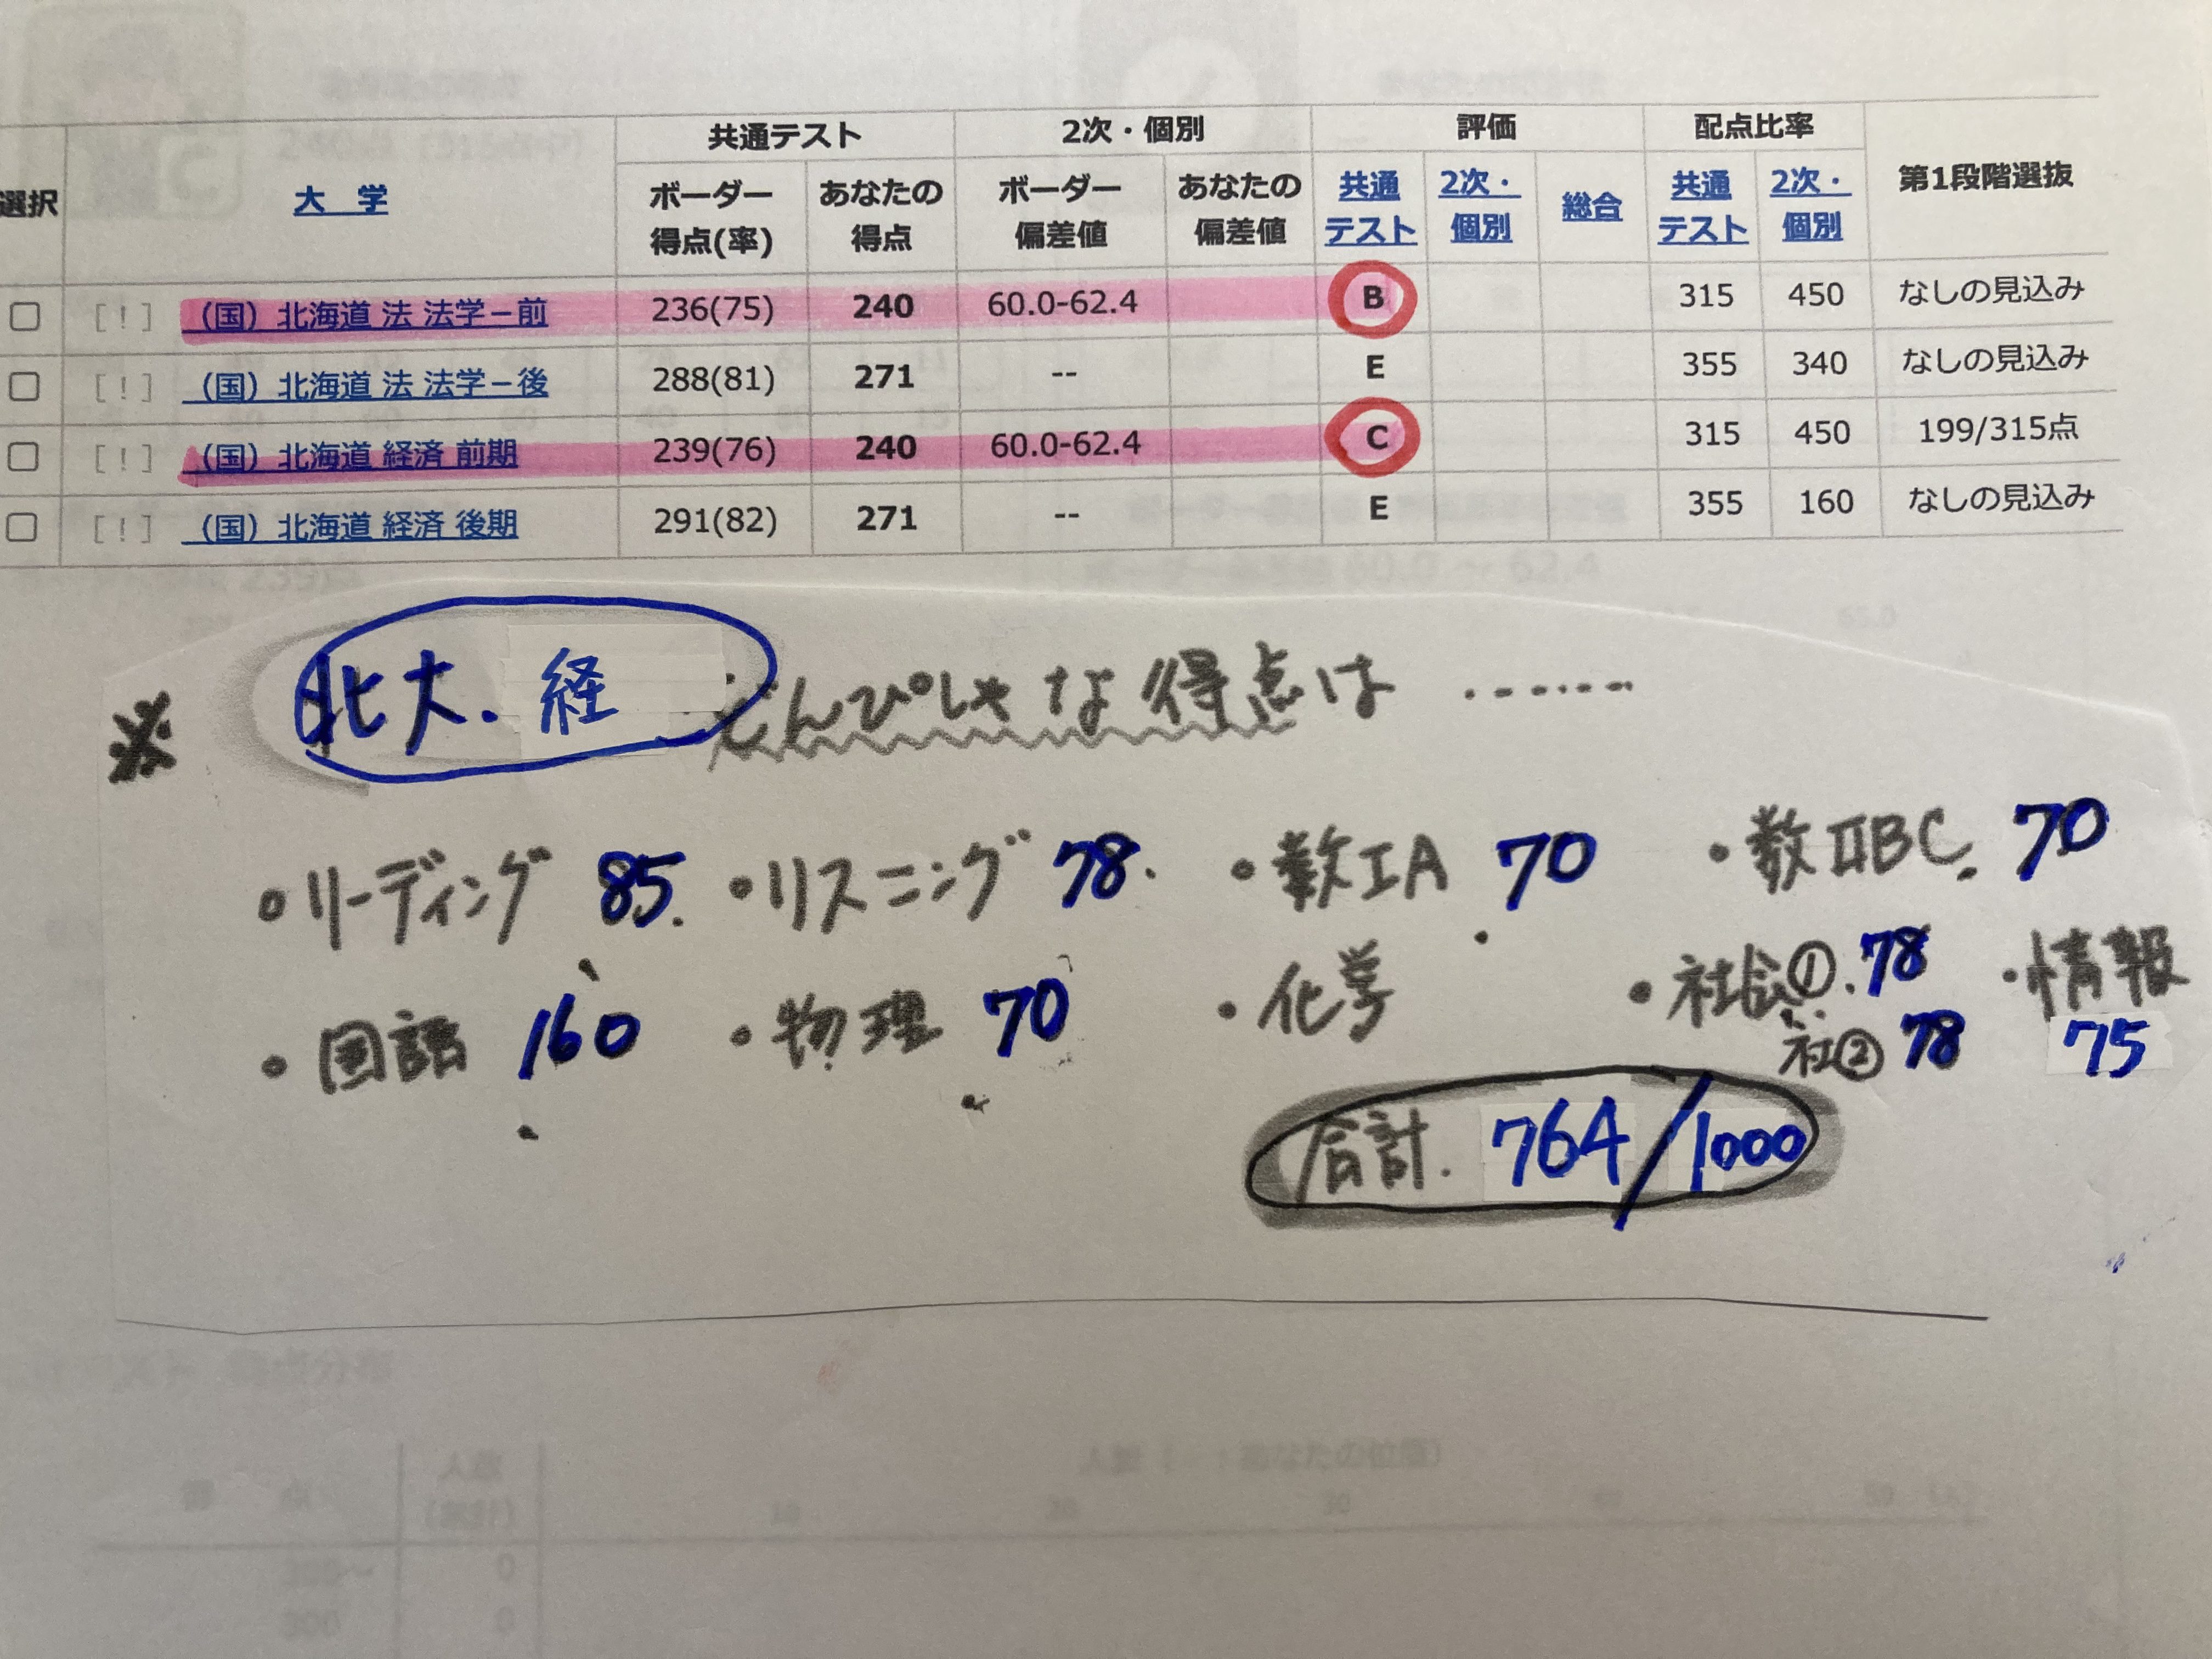 共通テスト 2次・個別 評価 配点比率
選択 大 学 ボーダー得点(率) あなたの得点 ボーダー偏差値 あなたの偏差値 共通テスト 2次・個別 総合 共通テスト 2次・個別 第1段階選抜
[!] (国) 北海道 法 法学－前 236(75) 240 60.0-62.4 B 315 450 なしの見込み
[!] (国) 北海道 法 法学－後 288(81) 271 -- E 355 340 なしの見込み
[!] (国) 北海道 経済 前期 239(76) 240 60.0-62.4 C 315 450 199/315点
[!] (国) 北海道 経済 後期 291(82) 271 -- E 355 160 なしの見込み
※ 北大.経 どんぴしゃな得点は ……
・リーディング 85. ・リスニング 78. ・数ⅠA 70 ・数ⅡBC. 70
・国語 160 ・物理 70 ・化学 ・社会①.78 ・情報
社② 78 75
合計. 764/1000